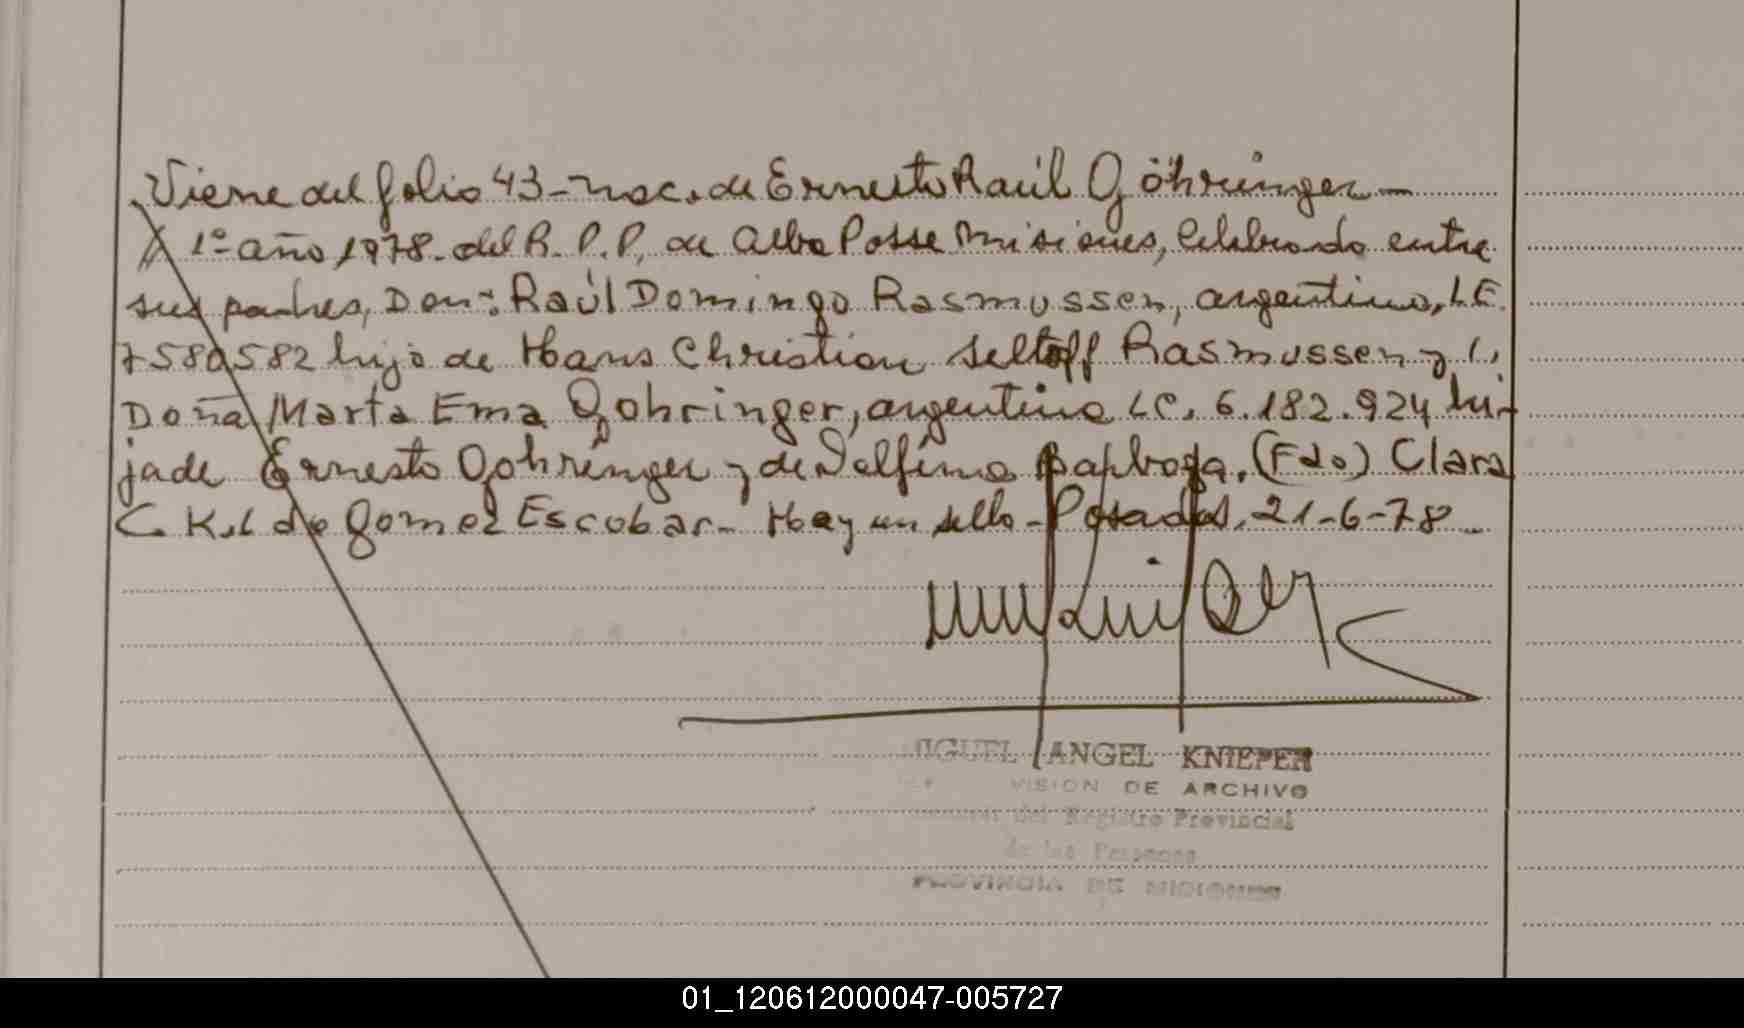 Viene del folio 43 - nac. de Ernesto Raúl Göhringer -
1º año 1978. del R. P. P. de Alba Posse Misiones, Celebrado entre
sus padres, Don: Raúl Domingo Rasmussen, argentino, L.E.
7580582 hijo de Hans Christian Rasmussen y
Doña Marta Ema Gohringer, argentina LC. 6.182.924 hi-
ja de Ernesto Gohringer y de Delfina (Fdo) Clara
C. K. de Gomez Escobar - Hay un sello - Posadas, 21-6-78
MIGUEL ANGEL KNIEPER
DIVISION DE ARCHIVO
del Registro Provincial
de las Personas
PROVINCIA DE MISIONES
01_120612000047-005727